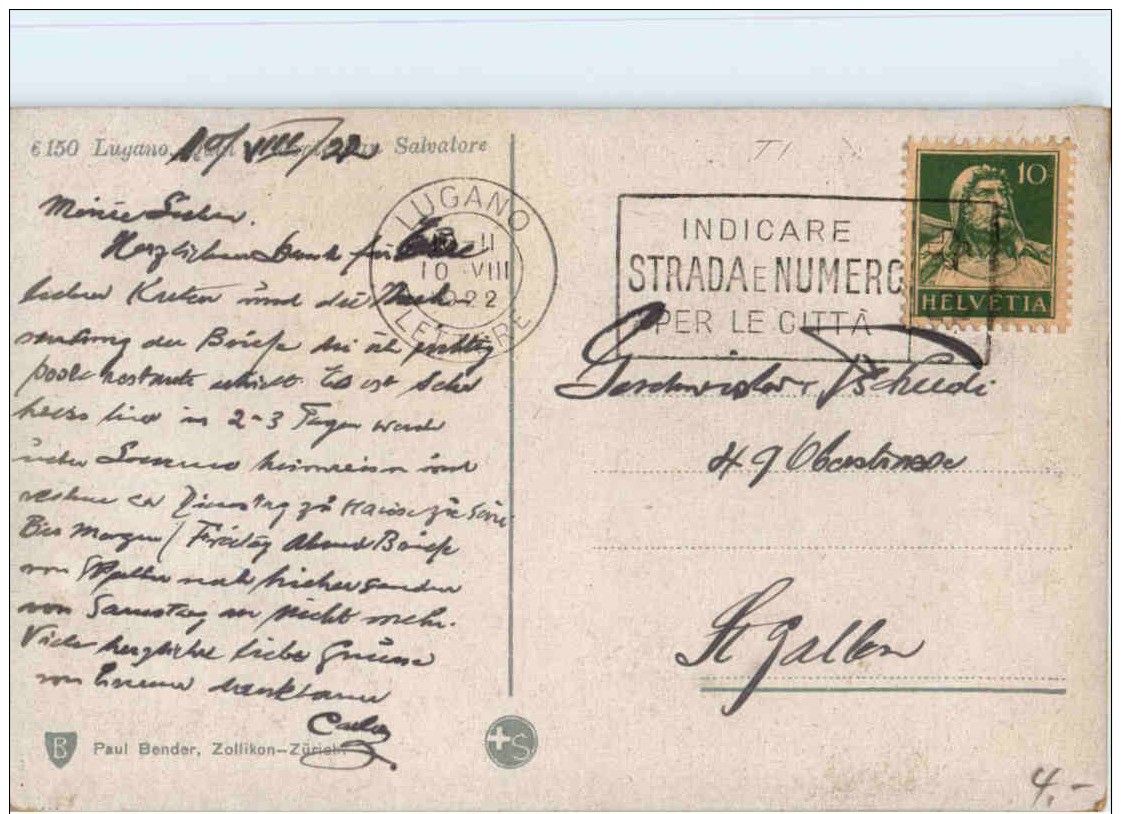 6150 Lugano, San Salvatore
10/VIII/22
Meine Lieben.
Herzlichen Dank für Eure
lieben Karten und die Nach-
sendung der Briefe die ich
poste restante erhielt. Es ist sehr
heiss und in 2-3 Tagen werde
heimreisen und
Dienstag zu Hause
Bis Morgen / Freitag Abend Briefe
von nach hierher senden
von Samstag an nicht mehr.
Viele herzliche liebe Grüsse
von Eurem dankbaren
Carlo
B Paul Bender, Zollikon-Zürich.
+S
LUGANO
II
10 VIII
1922
LETTERE
INDICARE
STRADA E NUMERO
PER LE CITTÀ
10
HELVETIA
TI
Geschwister Tschudi
49 Oberstrasse
St Gallen
4.-